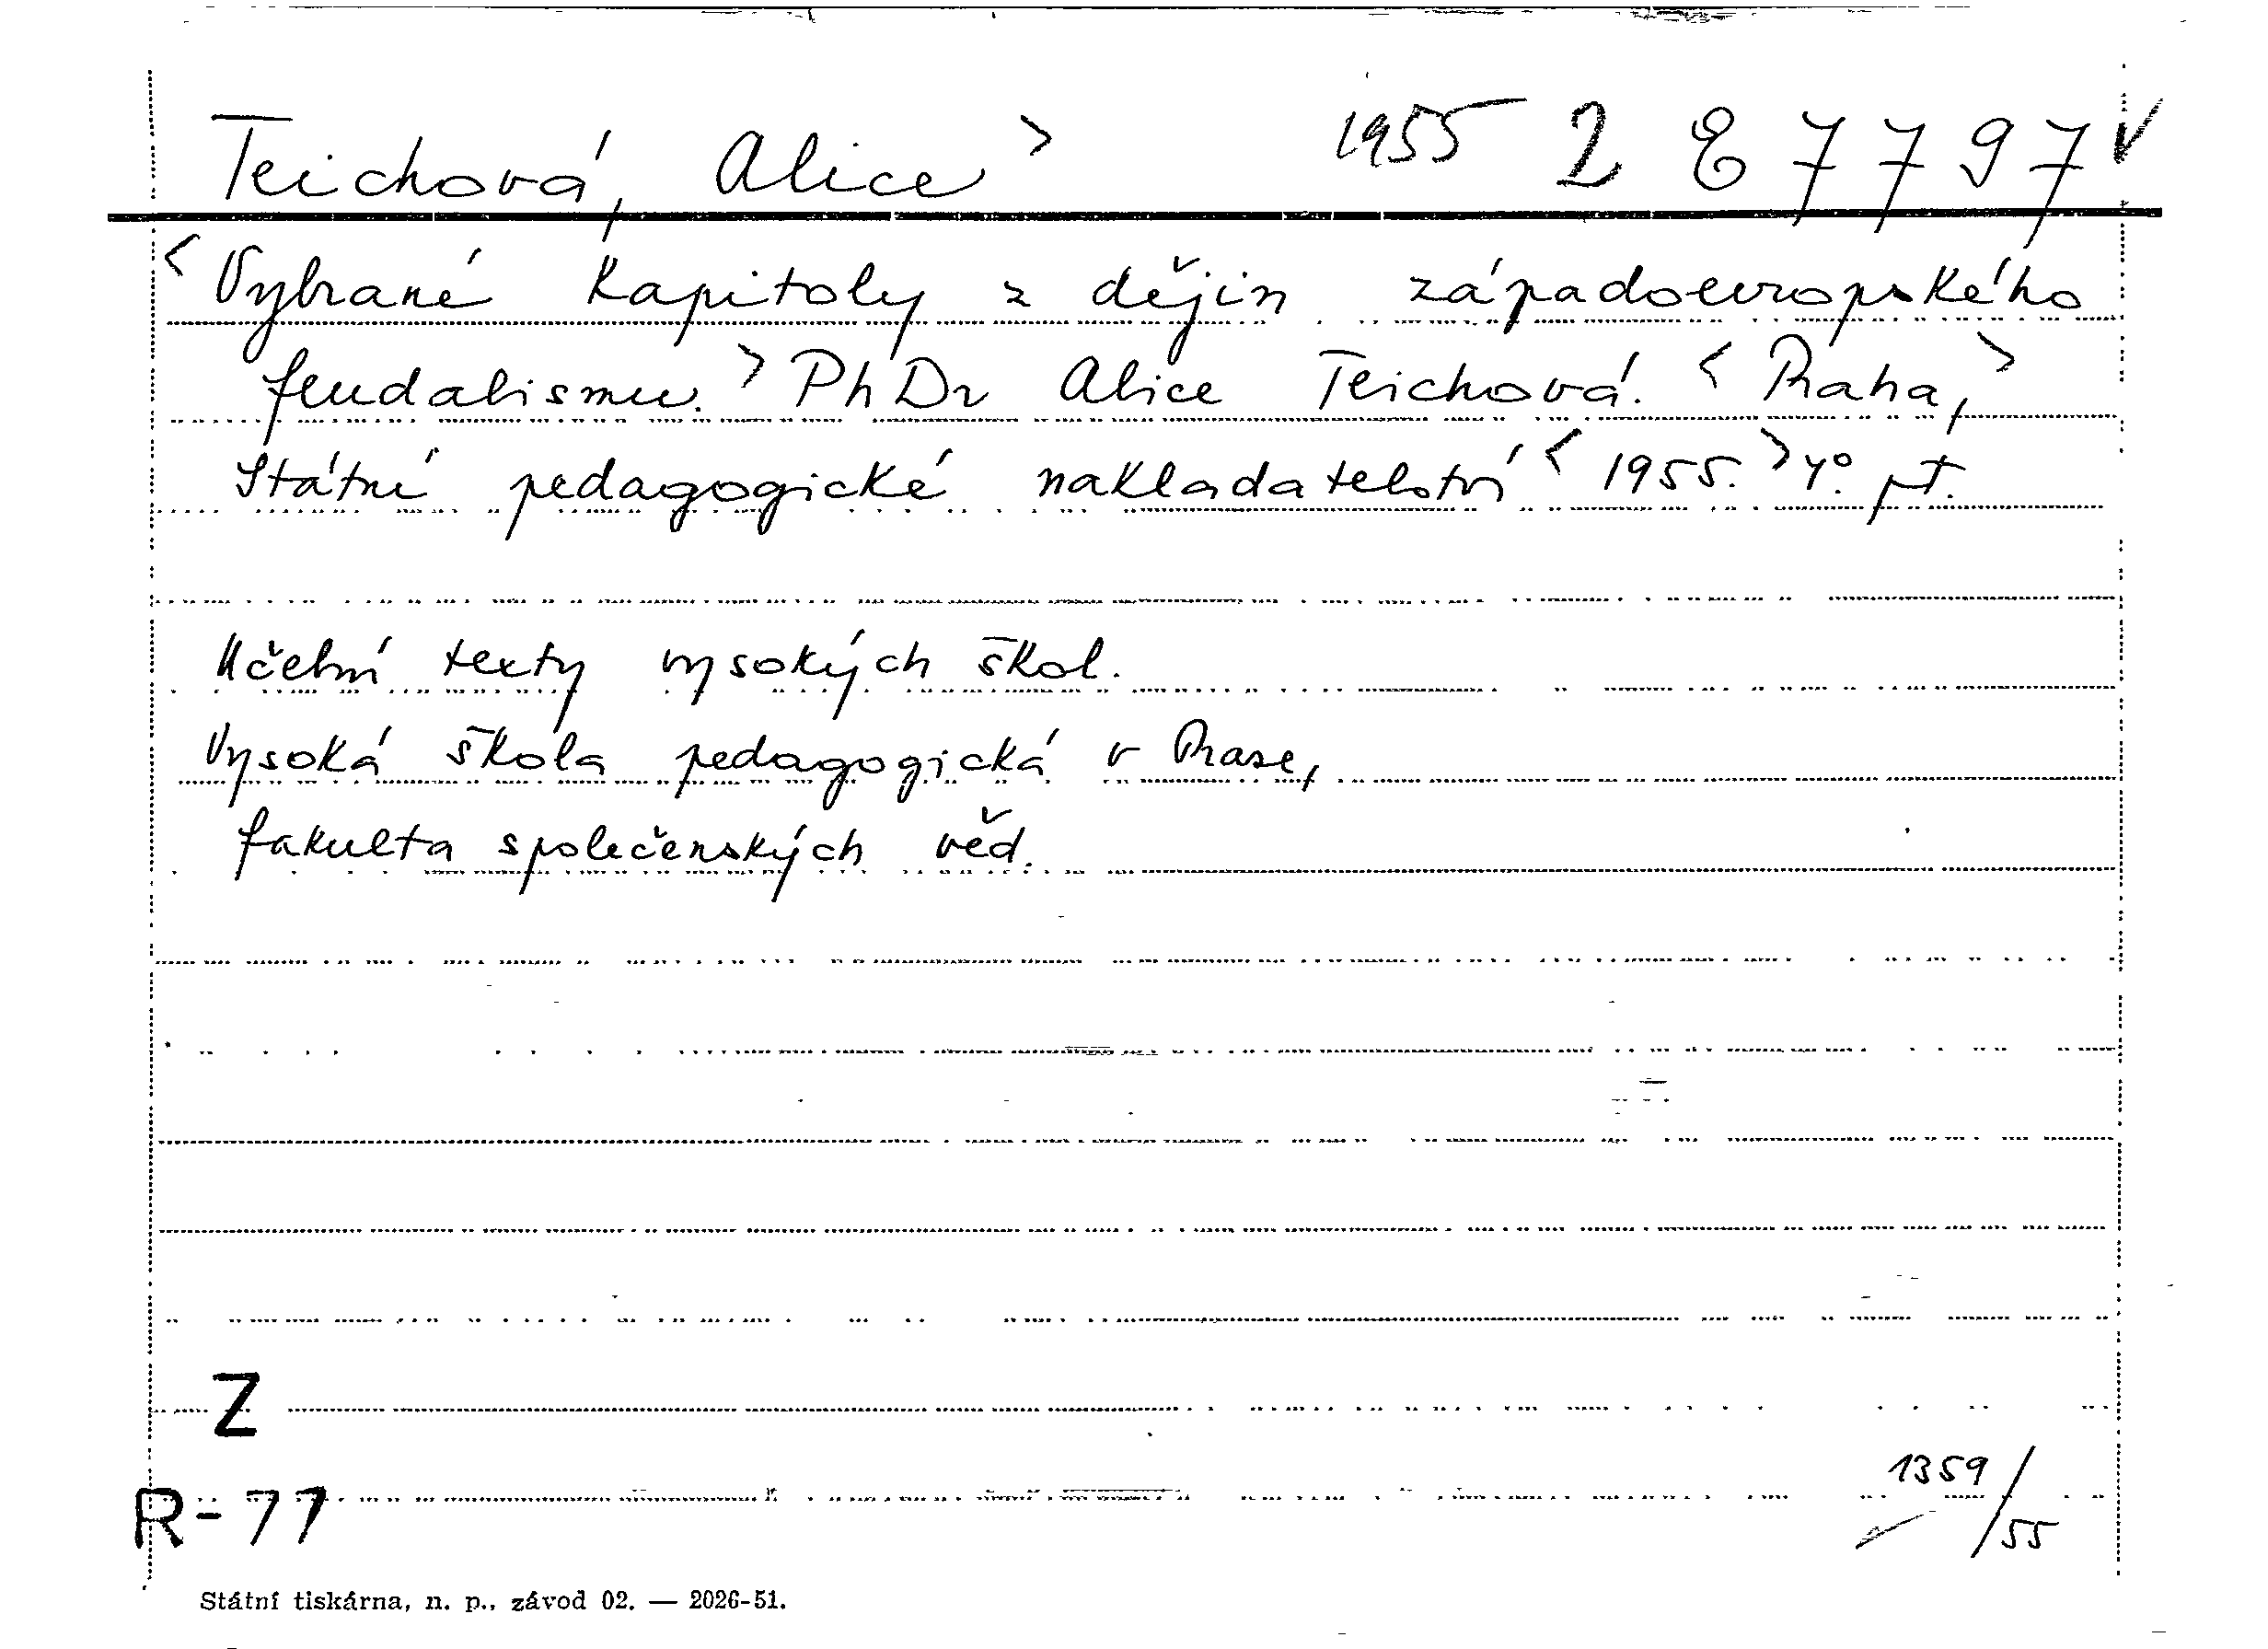 Teichová, Alice > 1955 2 E 7797 V
<Vybrané kapitoly z dějin západoevropského
feudalismu.> PhDr Alice Teichová. <Praha,>
Státní pedagogické nakladatelství <1955.> 4° pt.
Učební texty vysokých škol.
Vysoká škola pedagogická v Praze,
fakulta společenských věd.
Z
1359/55
R-77
Státní tiskárna, n. p., závod 02. — 2026-51.